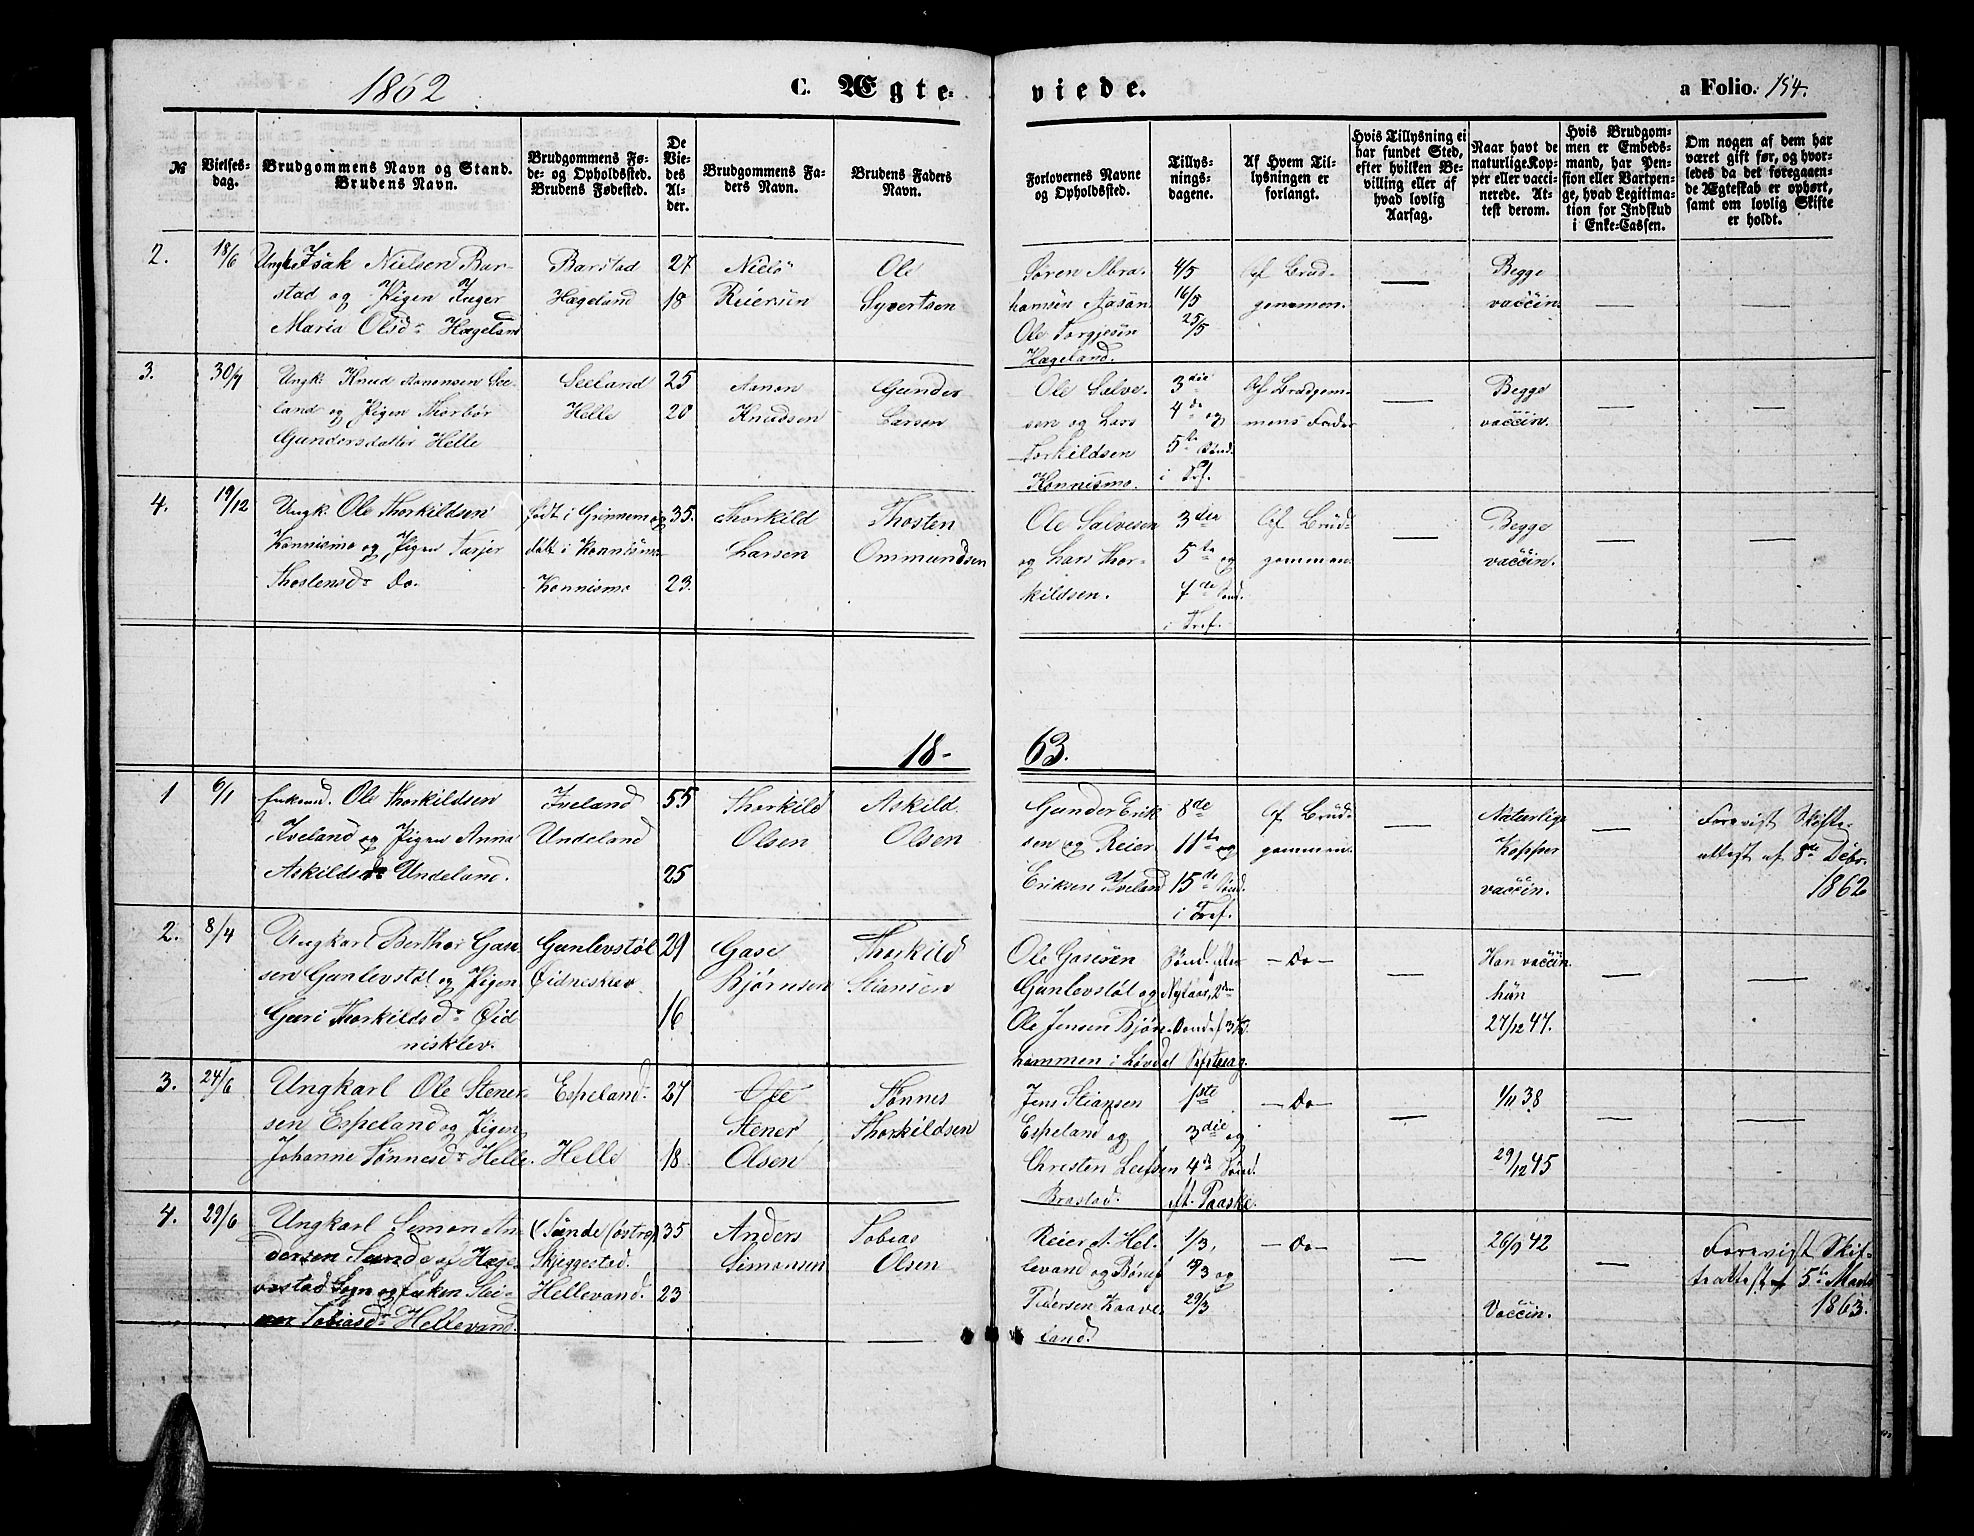 1862
C. Ægte-
viede.
a Folio. 154.
№
Vielses-
dag.
Brudgommens Navn og Stand.
Brudens Navn.
Brudgommens Fø-
de- og Opholdsted.
Brudens Fødested.
De
Vie-
des
Al-
der.
Brudgommens Fa-
ders Navn.
Brudens Faders
Navn.
Forlovernes Navne
og Opholdsted.
Tillys-
nings-
dagene.
Af Hvem Til-
lysningen er
forlangt.
Hvis Tillysning ei
har fundet Sted,
efter hvilken Be-
villing eller af
hvad lovlig
Aarsag.
Naar havt de
naturlige Kop-
per eller vacci-
nerede. At-
test derom.
Hvis Brudgom-
men er Embeds-
mand, har Pen-
sion eller Vartpen-
ge, hvad Legitima-
tion for Indskud
i Enke-Cassen.
Om nogen af dem har
været gift før, og hvor-
ledes da det foregaaen-
de Ægteskab er ophørt,
samt om lovlig Skifte
er holdt.
2.
18/6
Ungk. Isak Nielsen Bar-
stad og Pigen Inger
Maria Olsd. Hægeland
Barstad
Hægeland
27
18
Niels
Reiersen
Ole
Syvertsen
Søren Abra-
hamsen Aasan
Ole Torgjesen
Hægeland.
4/5
16/5
25/5
Af Brud-
gommen.
—
Begge
vaccin.
—
—
3.
30/7
Ungk: Knud Aanonsen See-
land og Pigen Thorbor
Gundersdatter Helle
Seeland
Helle
25
20
Aanon
Knudsen
Gunder
Larsen
Ole Salve-
sen og Lars
Torkildsen
Konnismo.
3die
4de og
5te Sønd.
i Tref.
Af Brudgom-
mens Fader
—
Begge
vaccin.
—
—
4.
19/12
Ungk: Ole Thorkildsen
Konnismo og Pigen Tarjer
Thostensd. do.
født i Grinnem og
døbt i Konnismo
Konnismo
35.
23.
Thorkild
Larsen
Thosten
Ommundsen
Ole Salvesen
og Lars Thor-
kildsen.
3die
5te og
7de Sønd.
i Tref.
Af Brud-
gommen.
—
Begge
vaccin.
—
—
18-
63.
1
6/1
Enkemd. Ole Thorkildsen
Iveland og Pigen Anna
Askildsd. Undeland.
Iveland
Undeland
55
25
Thorkild
Olsen
Askild
Olsen
Gunder Erik-
sen og Reier
Eriksen Iveland
8de
11te og
15de Sønd.
i Tref.
Af Brud-
gommen.
—
Naturlige
Kopper
vaccin.
—
Forevist Skifte-
attest af 8de Debr.
1862
2.
8/4
Ungkarl Berthor Gase-
sen Gunlevstøl og Pigen
Guri Thorkildsd. Øid-
nisklev.
Gunlevstøl
Øidnesklev
29
16
Gase
Bjørnsen
Thorkild
Stiansen
Ole Gasesen
Gunlevstøl og
Ole Jensen Bjørn-
hammen i Løvdal
Sønd. efter
Nytaar, 2den
Sønd. og 3die
—Do—
—
Han vaccin.
hun
27/12 47.
—
—
3.
24/6
Ungkarl Ole Stener-
sen Espeland og Pigen
Johanne Tønnesd. Helle.
Espeland.
Helle
27
18
Ole
Stener
Olsen
Tønnes
Thorkildsen
Jens Stiansen
Espeland og
Christen Leifsen
Brastad.
1ste
3die og
4de Sønd.
eft. Paaske.
—Do—
—
1/11 38
29/12 45
—
—
4.
29/6
Ungkarl Simon An-
dersen Sunde af Hæge-
bostad Sogn og Enken Stei-
nor Tobiasd. Hellevand.
(Sunde (østre)
Skjeggestad.
Hellevand.
35
23
Anders
Simonsen
Tobias
Olsen
Reier A. Hel-
levand og Børuf
Pedersen Kaave-
land.
1/3,
8/3 og
29/3
—Do—
—
26/9 42
Vaccin.
—
Forevist Skif-
teattest af 5te Marts
1863.